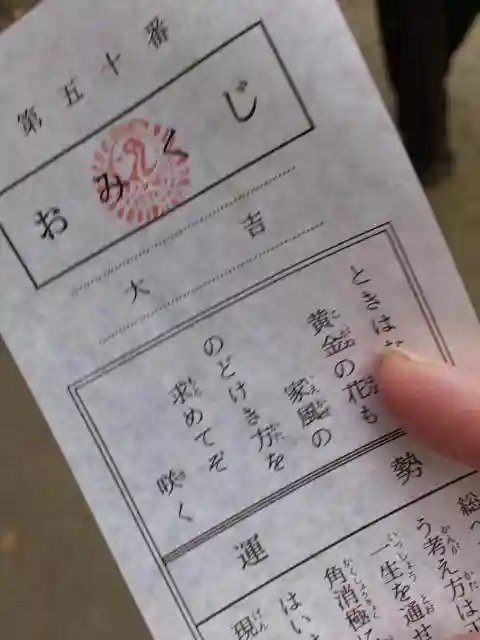 第五十番
おみくじ
大吉
ときは
黄金の花も
家風の
のどけき方を
求めてぞ
咲く
運勢
総
う考え方は
一生を通
角消極
はい
現